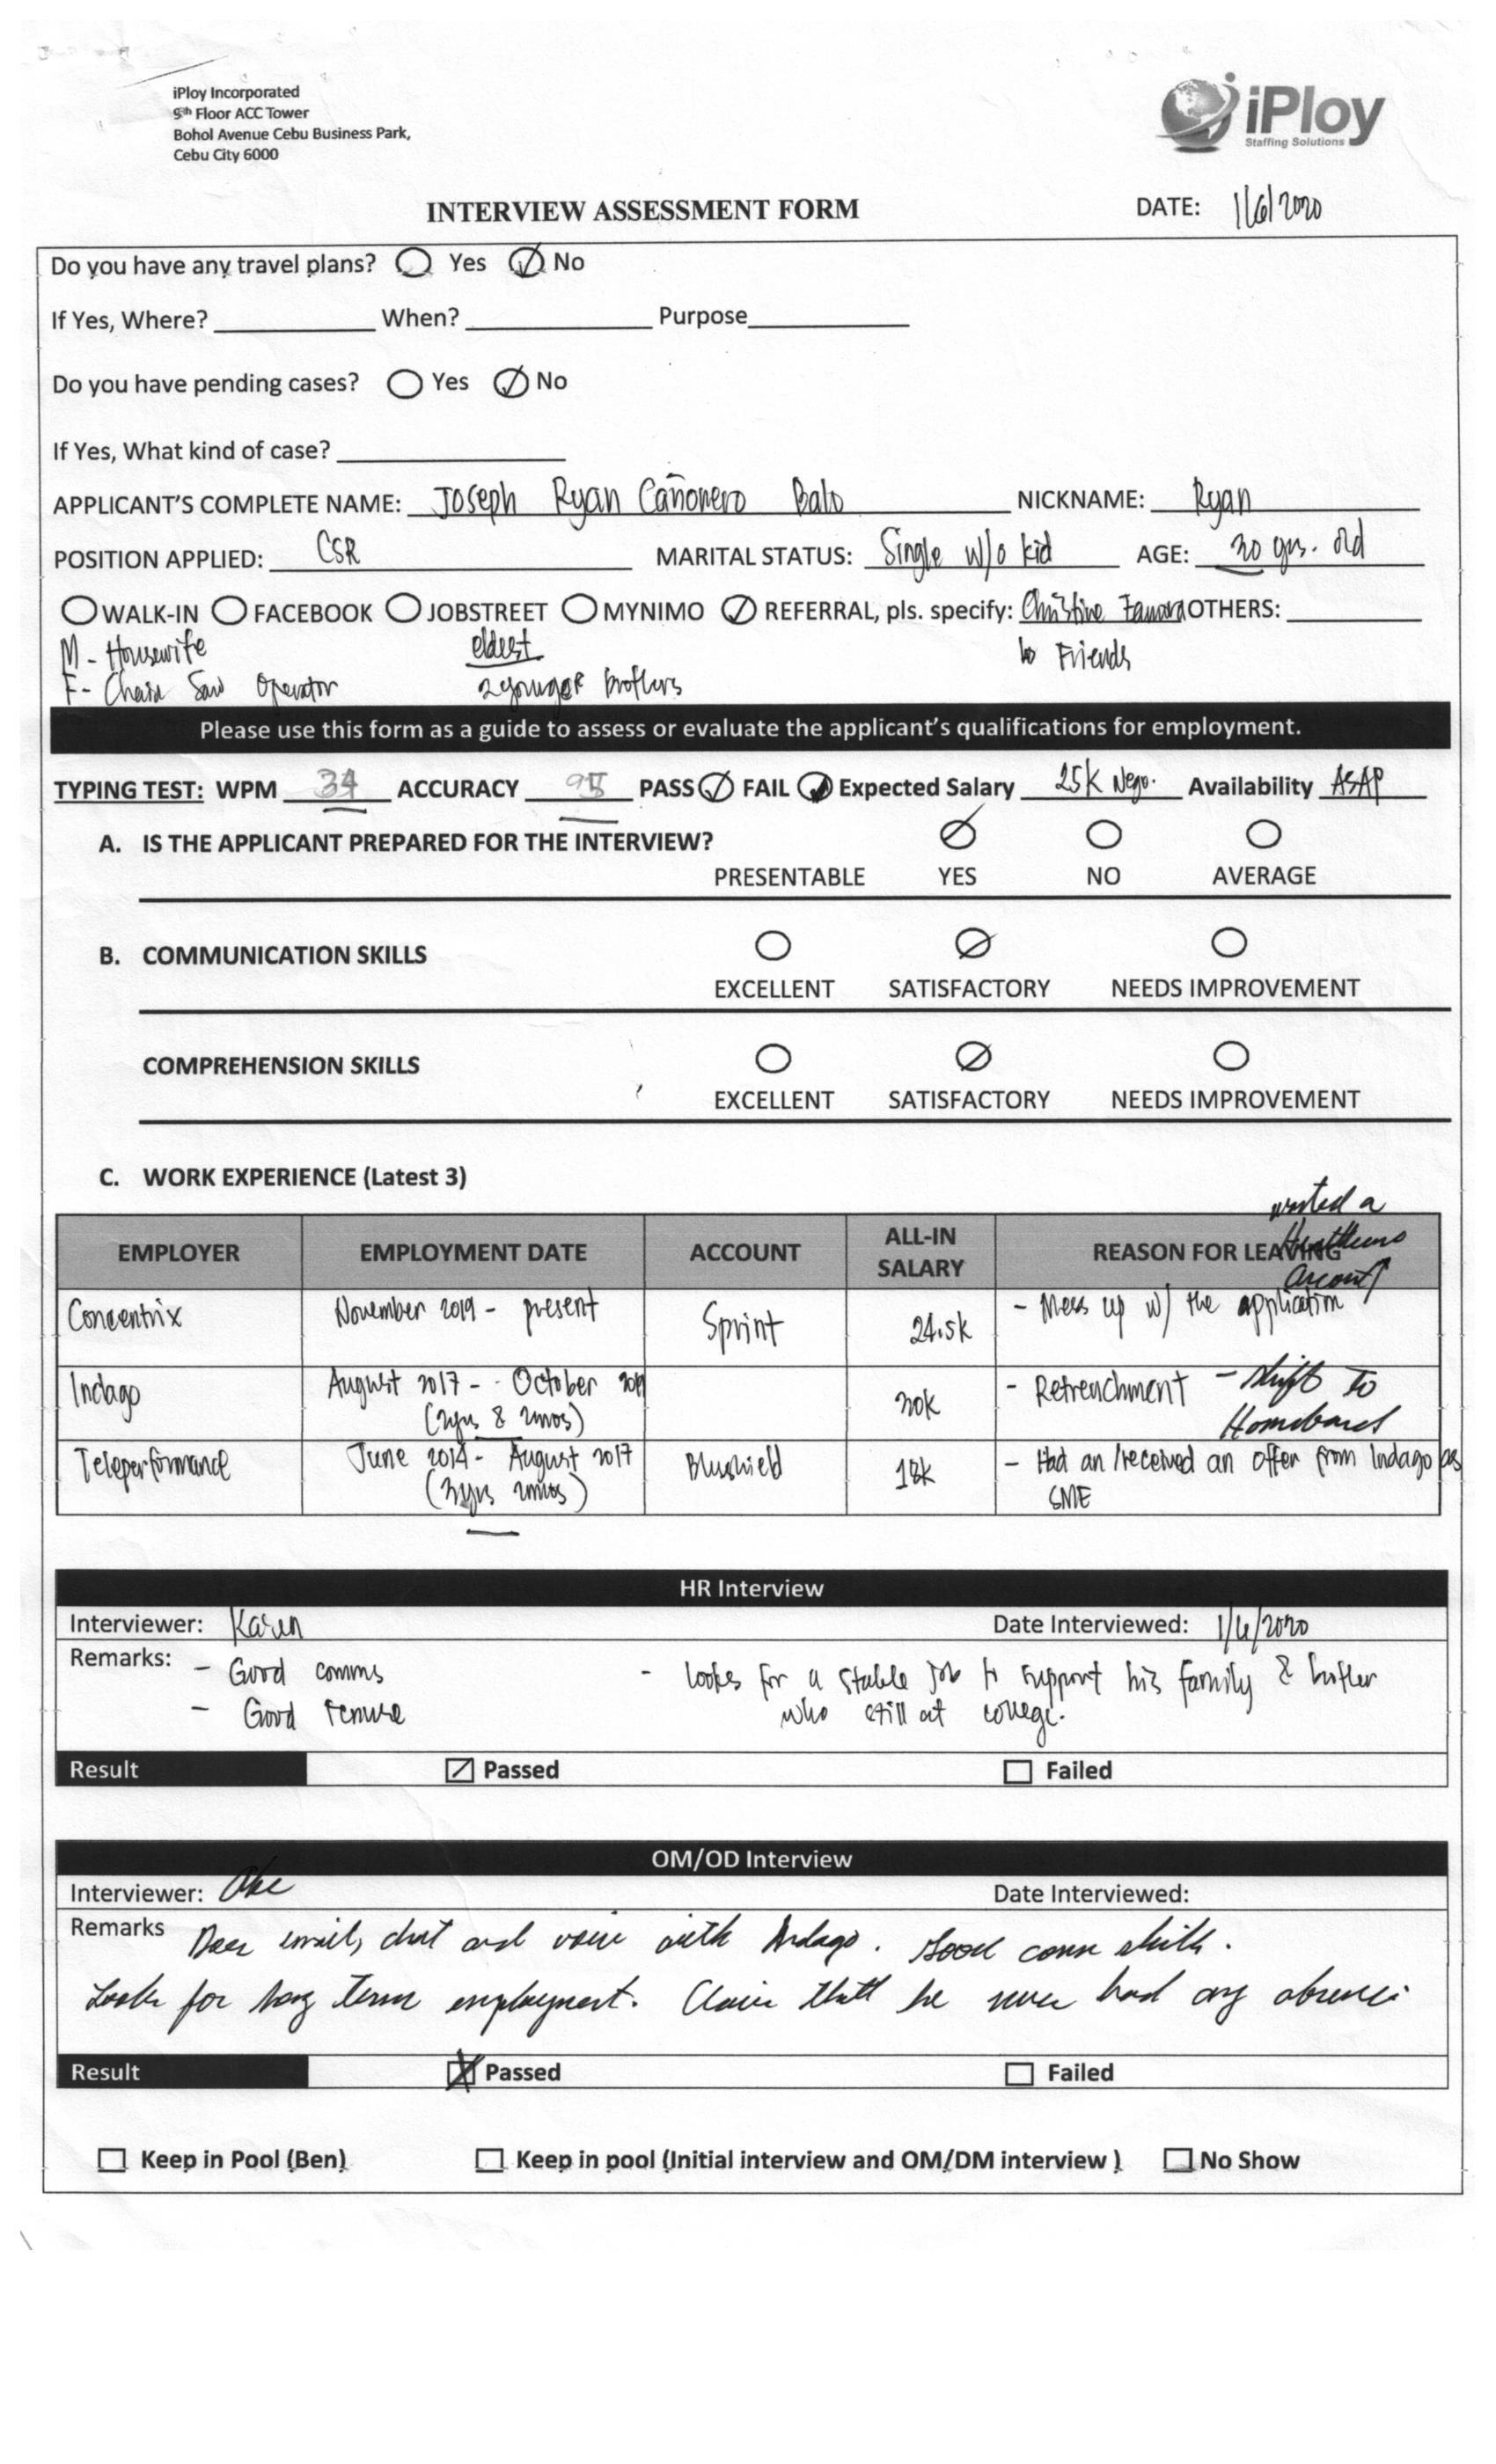 iPloy Incorporated
9th Floor ACC Tower
Bohol Avenue Cebu Business Park,
Cebu City 6000
iPloy
Staffing Solutions
INTERVIEW ASSESSMENT FORM DATE: 1/6/2020
Do you have any travel plans? Yes No
If Yes, Where? When? Purpose
Do you have pending cases? Yes No
If Yes, What kind of case?
APPLICANT'S COMPLETE NAME: Joseph Ryan Cañonero Balo NICKNAME: Ryan
POSITION APPLIED: CSR MARITAL STATUS: Single w/o kid AGE: 30 yrs. old
WALK-IN FACEBOOK JOBSTREET MYNIMO REFERRAL, pls. specify: Christine OTHERS:
M - Housewife eldest Friends
F - Chain Saw Operator 2 younger brothers
Please use this form as a guide to assess or evaluate the applicant's qualifications for employment.
TYPING TEST: WPM 34 ACCURACY 95 PASS FAIL Expected Salary 25K Nego. Availability ASAP
A. IS THE APPLICANT PREPARED FOR THE INTERVIEW?
PRESENTABLE YES NO AVERAGE
B. COMMUNICATION SKILLS
EXCELLENT SATISFACTORY NEEDS IMPROVEMENT
COMPREHENSION SKILLS
EXCELLENT SATISFACTORY NEEDS IMPROVEMENT
C. WORK EXPERIENCE (Latest 3)
wanted a
account
EMPLOYER EMPLOYMENT DATE ACCOUNT ALL-IN SALARY REASON FOR LEAVING
Concentrix November 2019 - present Sprint 24.5k - Mess up w/ the application
Indago August 2017 - October 2019 30k - Retrenchment - shift to
(2yrs & 2mos) Homebased
Teleperformance June 2014 - August 2017 Blushield 18k - Had an/received an offer from Indago as
(3yrs 2mos) SME
HR Interview
Interviewer: Karen Date Interviewed: 1/6/2020
Remarks: - Good comms - looks for a stable job to support his family & brother
- Good Tenure who still at college.
Result Passed Failed
OM/OD Interview
Interviewer: Date Interviewed:
Remarks Does email, chat and voice with Indago. Good comm skills.
Looks for long term employment. Claim that he never had any absences
Result Passed Failed
Keep in Pool (Ben) Keep in pool (Initial interview and OM/DM interview ) No Show